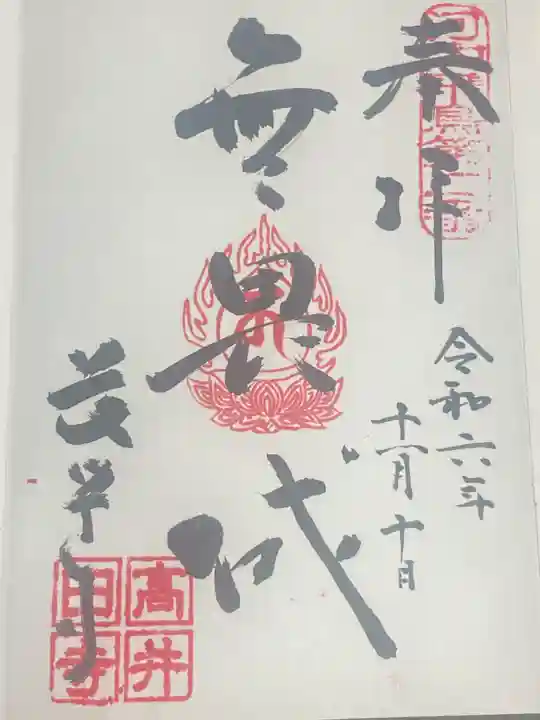 奉拝
令和六年
十一月十日
無畏城
高井
田寺